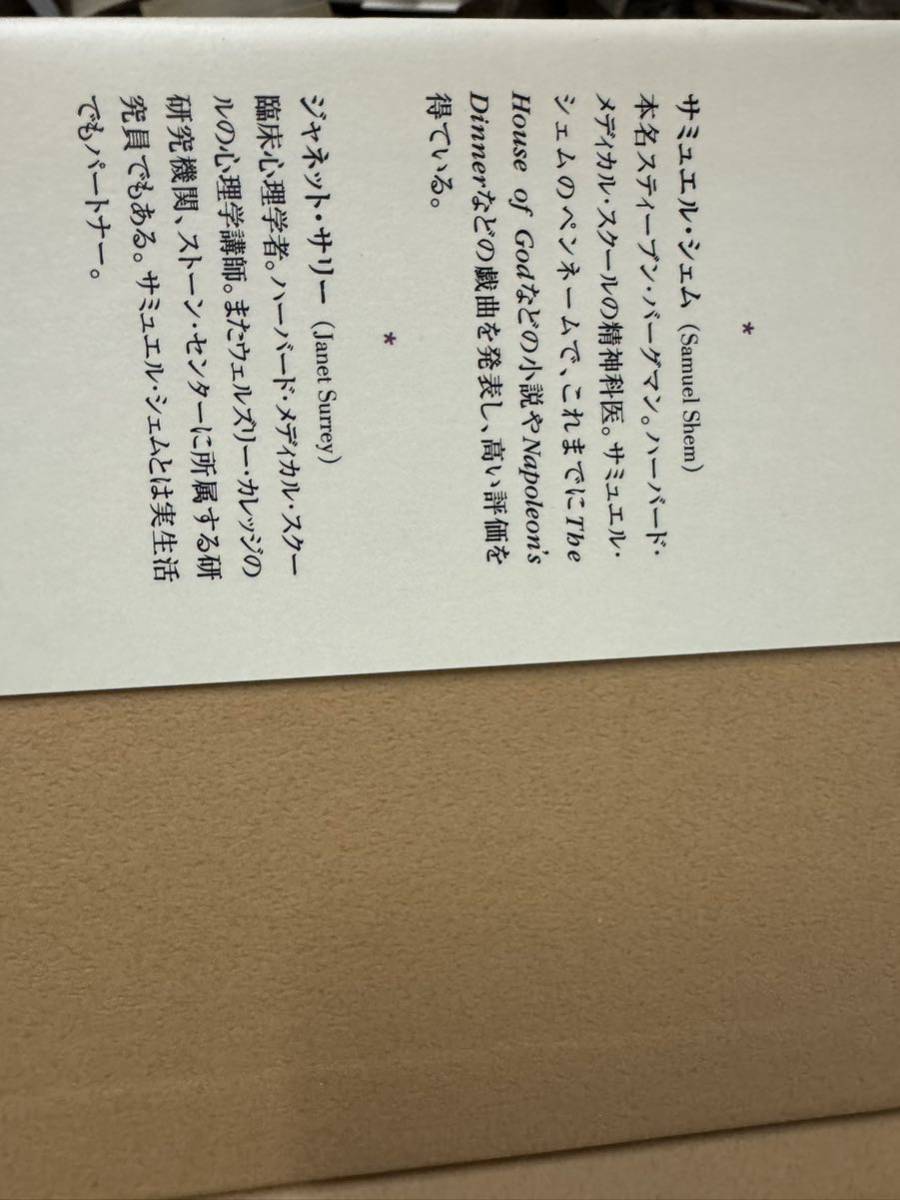 *
サミュエル・シェム（Samuel Shem）
本名スティーブン・バーグマン。ハーバード・
メディカル・スクールの精神科医。サミュエル・
シェムのペンネームで、これまでにThe
House of Godなどの小説やNapoleon's
Dinnerなどの戯曲を発表し、高い評価を
得ている。
*
ジャネット・サリー（Janet Surrey）
臨床心理学者。ハーバード・メディカル・スクー
ルの心理学講師。またウェルズリー・カレッジの
研究機関、ストーン・センターに所属する研
究員でもある。サミュエル・シェムとは実生活
でもパートナー。